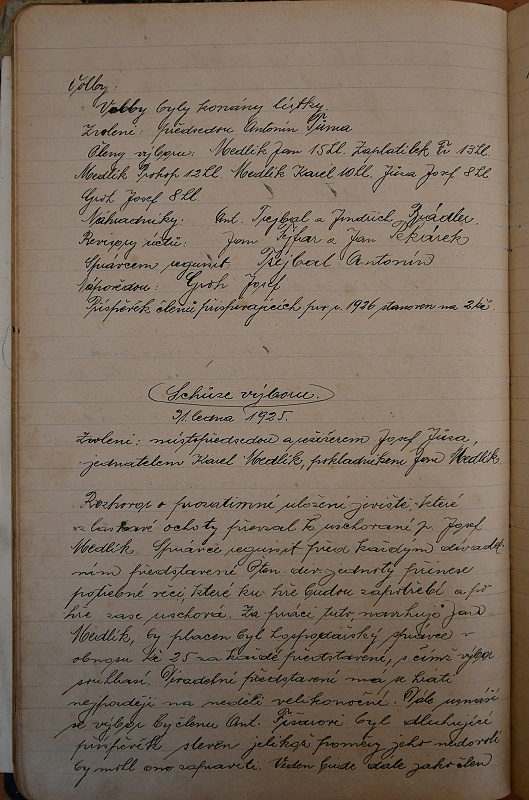 Volby:
Volby byly konány lístky.
Zvoleni: předsedou Antonín Tůma
Členy výboru: Medlik Jan 15 hl. Zaplatilek Fr. 13 hl.
Medlik Prokop 12 hl. Medlik Karel 10 hl. Jůsa Josef 8 hl
Groh Josef 8 hl.
Náhradníky: Ant. Trejbal a Jindřich
Revisory účtů: Jan Fejfar a Jan Pekárek
Správcem requisit: Trejbal Antonín
Nápovědou: Groh Josef
Příspěvek členů přispívajících pro r. 1926 stanoven na 2 Kč.
Schůze výboru.
31 ledna 1925.
Zvoleni: místopředsedou a režiserem Josef Jůsa,
jednatelem Karel Medlik, pokladníkem Jan Medlik.
Rozhovor o prozatimné uložení jeviště, které
z laskavé ochoty převzal k uschování p. Josef
Medlik. Správce requisit před každým divadel-
ním představení Och. div. jednoty přinese
potřebné věci které ku hře budou zapotřebí a po
hře zase uschová. Za práci tuto navrhuje Jan
Medlik, by placen byl hospodářský správce v
obnosu Kč 25 za každé představení, s čímž výbor
souhlasí. Divadelní představení má se hráti
nejpozději na neděli velikonoční. Dále usnáší
se výbor by členu Ant. byl dluhující
příspěvek sleven jelikož poměry jeho nedovolí
by mohl ono zapraviti. Veden bude dále jako člen